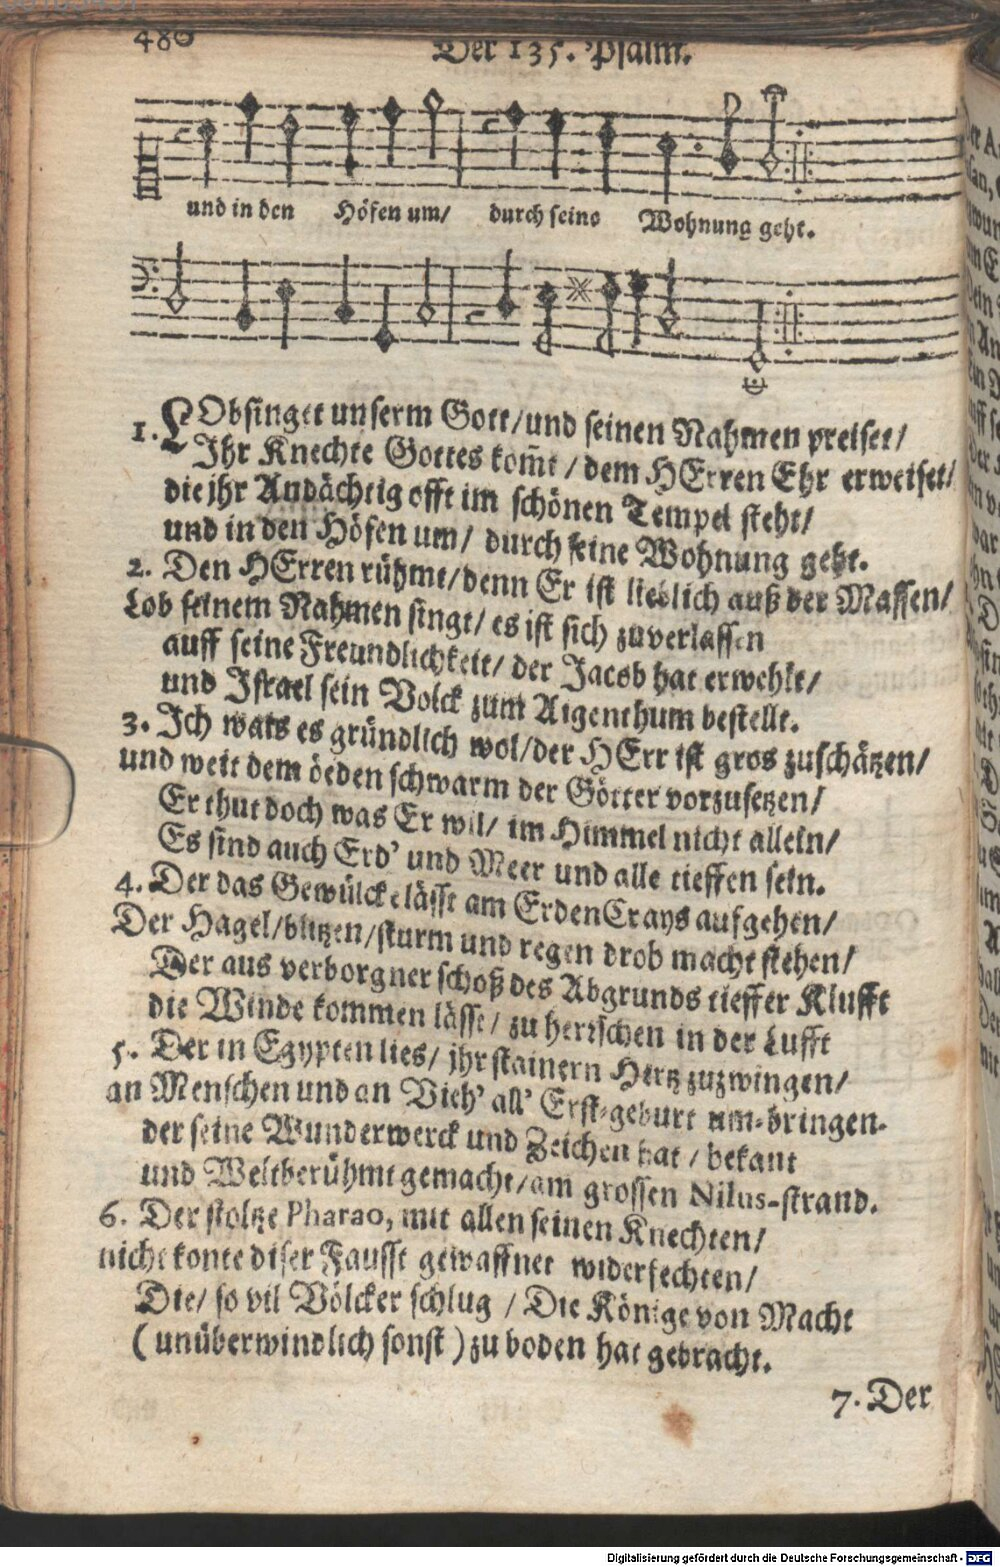 486
Der 135. Psalm.
und in den Höfen um/ durch seine Wohnung geht.
1. LObsinget unserm Gott/und seinen Nahmen preiset/
Ihr Knechte Gottes kom̄t / dem HErren Ehr erweiset/
die jhr Andächtig offt im schönen Tempel steht/
und in den Höfen um/ durch seine Wohnung geht.
2. Den HErren rühmt/denn Er ist lieblich auß der Massen/
Lob seinem Nahmen singt/ es ist sich zuverlassen
auff seine Freundlichkeit/ der Jacob hat erwehlt/
und Israel sein Volck zum Aigenthum bestellt.
3. Ich wais es gründlich wol/der HErr ist gros zuschätzen/
und weit dem öeden schwarm der Götter vorzusetzen/
Er thut doch was Er wil/ im Himmel nicht allein/
Es sind auch Erd' und Meer und alle tieffen sein.
4. Der das Gewülcke lässt am ErdenCrays aufgehen/
Der Hagel/blitzen/sturm und regen drob macht stehen/
Der aus verborgner schoß des Abgrunds tieffer Klufft
die Winde kommen lässt/ zu herrschen in der Lufft
5. Der in Egypten lies/ jhr stainern Hertz zuzwingen/
an Menschen und an Vieh' all' Erst-geburt um-bringen.
der seine Wunderwerck und Zeichen hat / bekant
und Weltberühmt gemacht/am grossen Nilus-strand.
6. Der stoltze Pharao, mit allen seinen Knechten/
nicht konte diser Fausst gewaffnet widerfechten/
Die/ so vil Völcker schlug / Die Könige von Macht
( unüberwindlich sonst ) zu boden hat gebracht.
7. Der
Digitalisierung gefördert durch die Deutsche Forschungsgemeinschaft - DFG